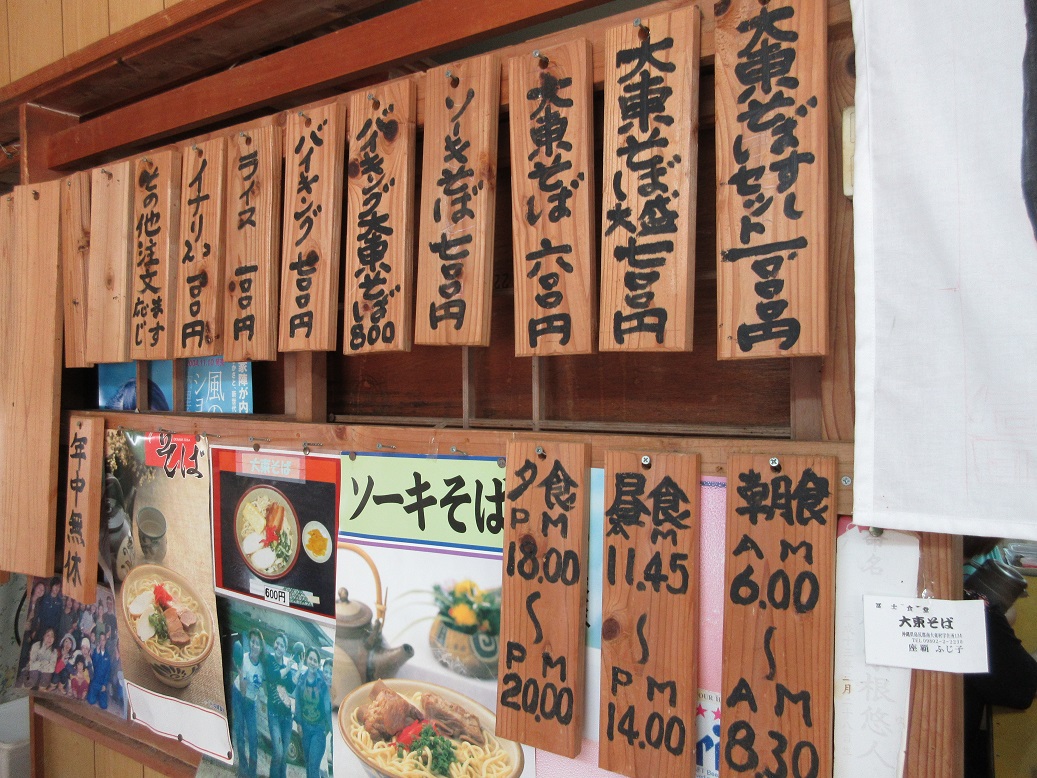 大東そばすし
セット 一、二〇〇円
大東そば
大盛 七〇〇円
大東そば 六〇〇円
ソーキそば 七〇〇円
バイキング大東そば
800
バイキング 七〇〇円
ライス 一〇〇円
イナリ 一〇〇円
その他注文応じます
年中無休
そば
大東そば
600円
ソーキそば
夕食
PM
18.00
〜
PM
20.00
昼食
11.45
〜
PM
14.00
朝食
AM
6.00
〜
AM
8.30
冨士食堂
大東そば
座覇 ふじ子
根悠人